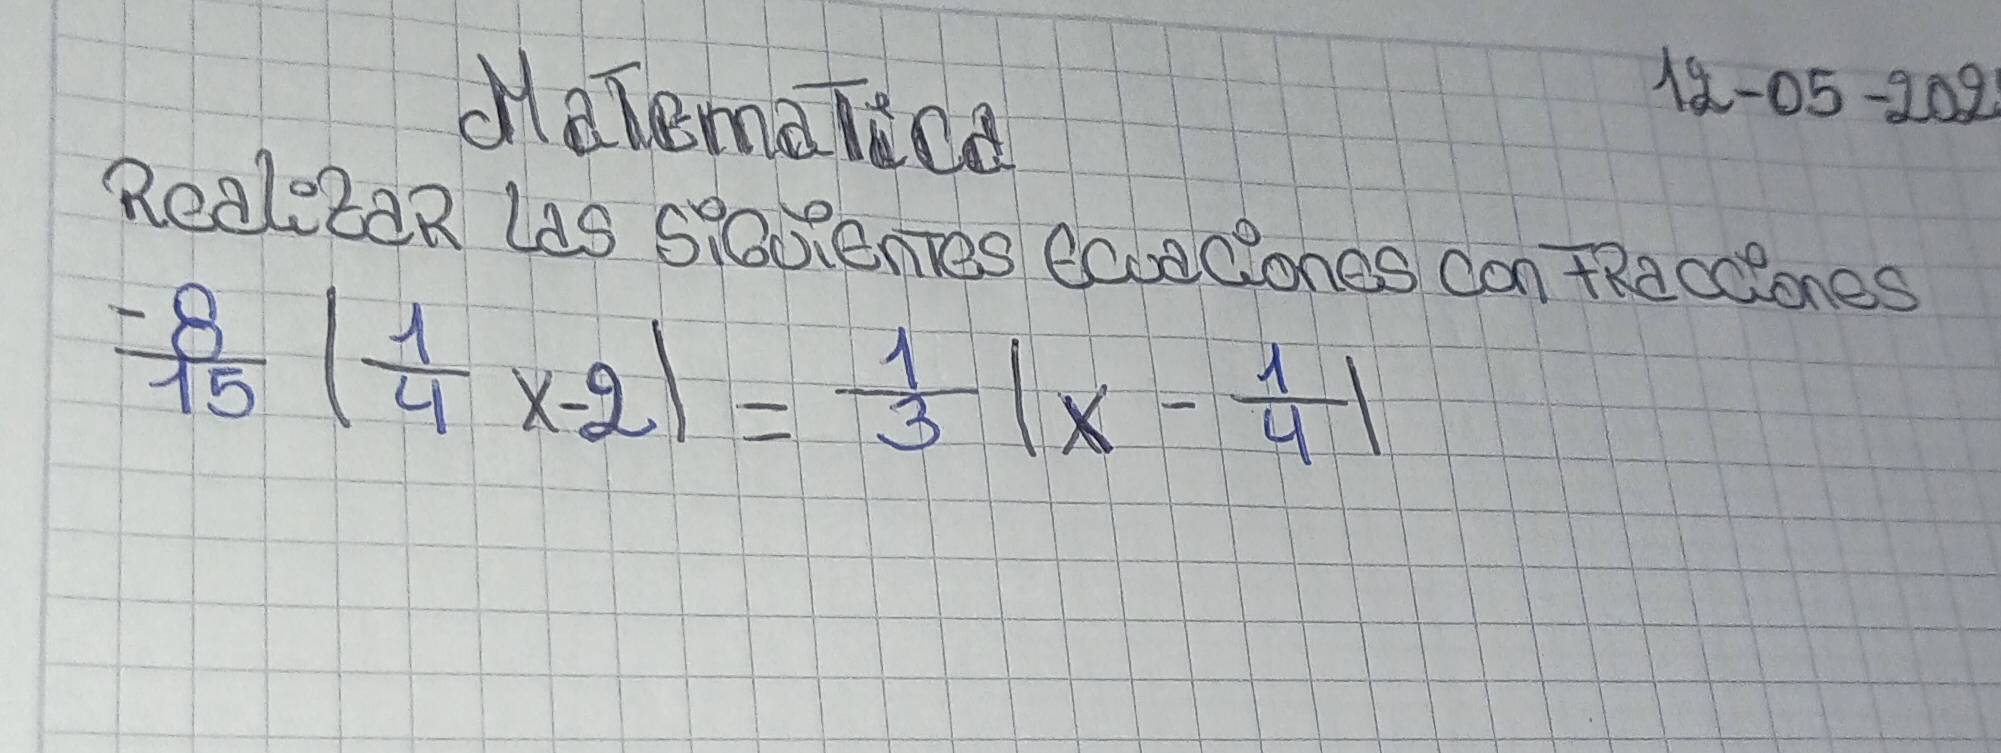 Matematica
12-05-202
Realizar las siguientes ecuaciones con fracciones
-8/15 (1/4 x-2) = 1/3 (x - 1/4)